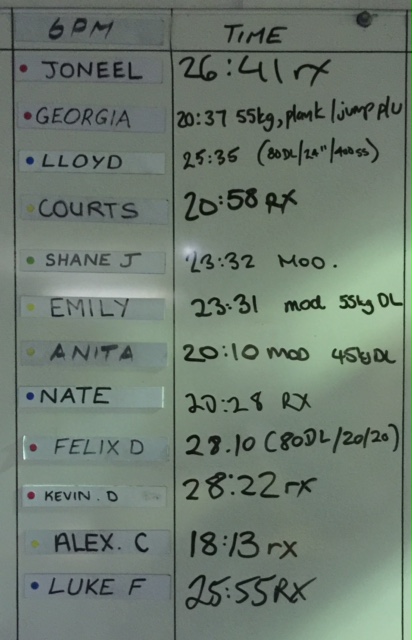 6PM TIME
JONEEL 26:41 rx
GEORGIA 20:37 55kg, plank/jump p/u
LLOYD 25:35 (80DL/24"/400ss)
COURTS 20:58 RX
SHANE J 23:32 MOD.
EMILY 23:31 mod 55kg DL
ANITA 20:10 MOD 45kg DL
NATE 20:28 RX
FELIX D 28.10 (80DL/20/20)
KEVIN. D 28:22 rx
ALEX. C 18:13 rx
LUKE F 25:55 RX